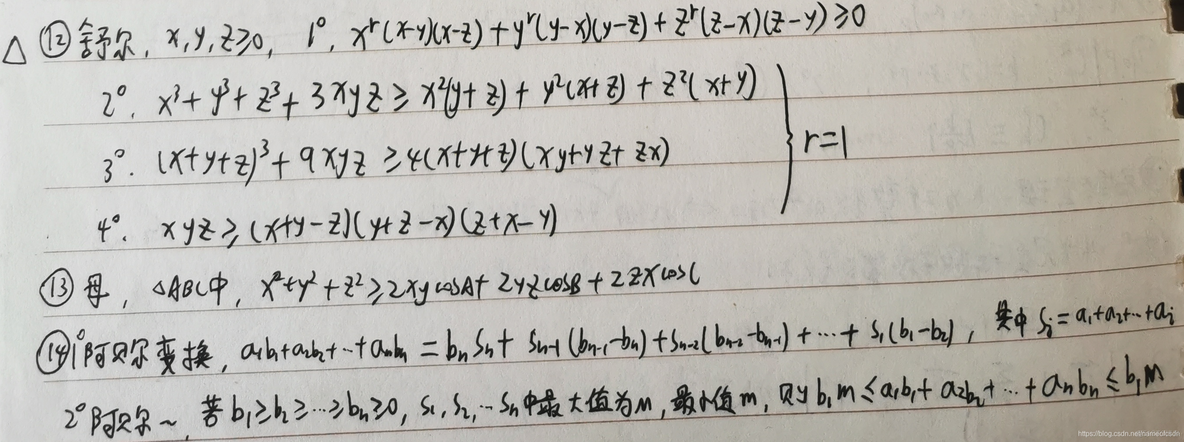 △ ⑫ 舒尔, x,y,z≥0, 1°, xʳ(x-y)(x-z)+yʳ(y-x)(y-z)+zʳ(z-x)(z-y)≥0
2°. x³+y³+z³+3xyz≥x²(y+z)+y²(x+z)+z²(x+y)
3°. (x+y+z)³+9xyz≥4(x+y+z)(xy+yz+zx)
r=1
4°. xyz≥(x+y-z)(y+z-x)(z+x-y)
⑬ 母, △ABC中, x²+y²+z²≥2xycosA+2yzcosB+2zxcosC
⑭ 1°阿贝尔变换, a₁b₁+a₂b₂+…+aₙbₙ=bₙSₙ+Sₙ₋₁(bₙ₋₁-bₙ)+Sₙ₋₂(bₙ₋₂-bₙ₋₁)+…+S₁(b₁-b₂), 其中Sᵢ=a₁+a₂+…+aᵢ
2°阿贝尔~, 若b₁≥b₂≥…≥bₙ≥0, S₁,S₂,…Sₙ中最大值为M, 最小值m, 则b₁m≤a₁b₁+a₂b₂+…+aₙbₙ≤b₁M
https://blog.csdn.net/nameofcsdn